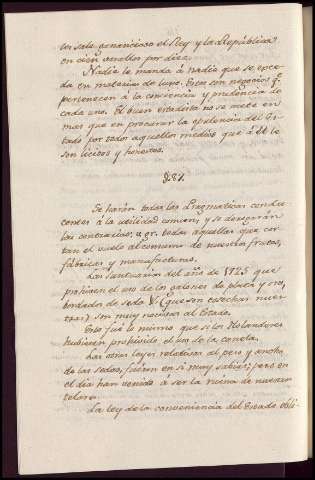 les sale ganancioso el Rey y la República
en cien vasallos por diez.
Nadie le manda à nadie que se exce-
da en materias de luxo. Estos son negocios q.e
pertenecen à la conciencia y prudencia de
cada uno. El buen estadista no se mete en
mas que en procurar la opulencia del Es-
tado por todos aquellos medios que à él le
son licitos y honestos.
§.87.
Se harán todas las Pragmaticas condu-
centes à la utilidad comun, y se derogarán
las contrarias, v.gr. todas aquellas que cor-
tan el vuelo al consumo de nuestros frutos,
fábricas y manufacturas.
Las suntuarias del año de 1725 que
prohiven el uso de los galones de plata y oro,
bordados de seda &c (que son cosechas nues-
tras) son muy nocivas al Estado.
Esto fué lo mismo que si los Holandeses
hubiesen prohivido el uso de la canela.
Las otras leyes relativas al peso y ancho
de las sedas, fueron en sí muy sabias; pero en
el dia han venido à ser la ruina de nuestros
telares.
La ley de la conveniencia del Estado obli-